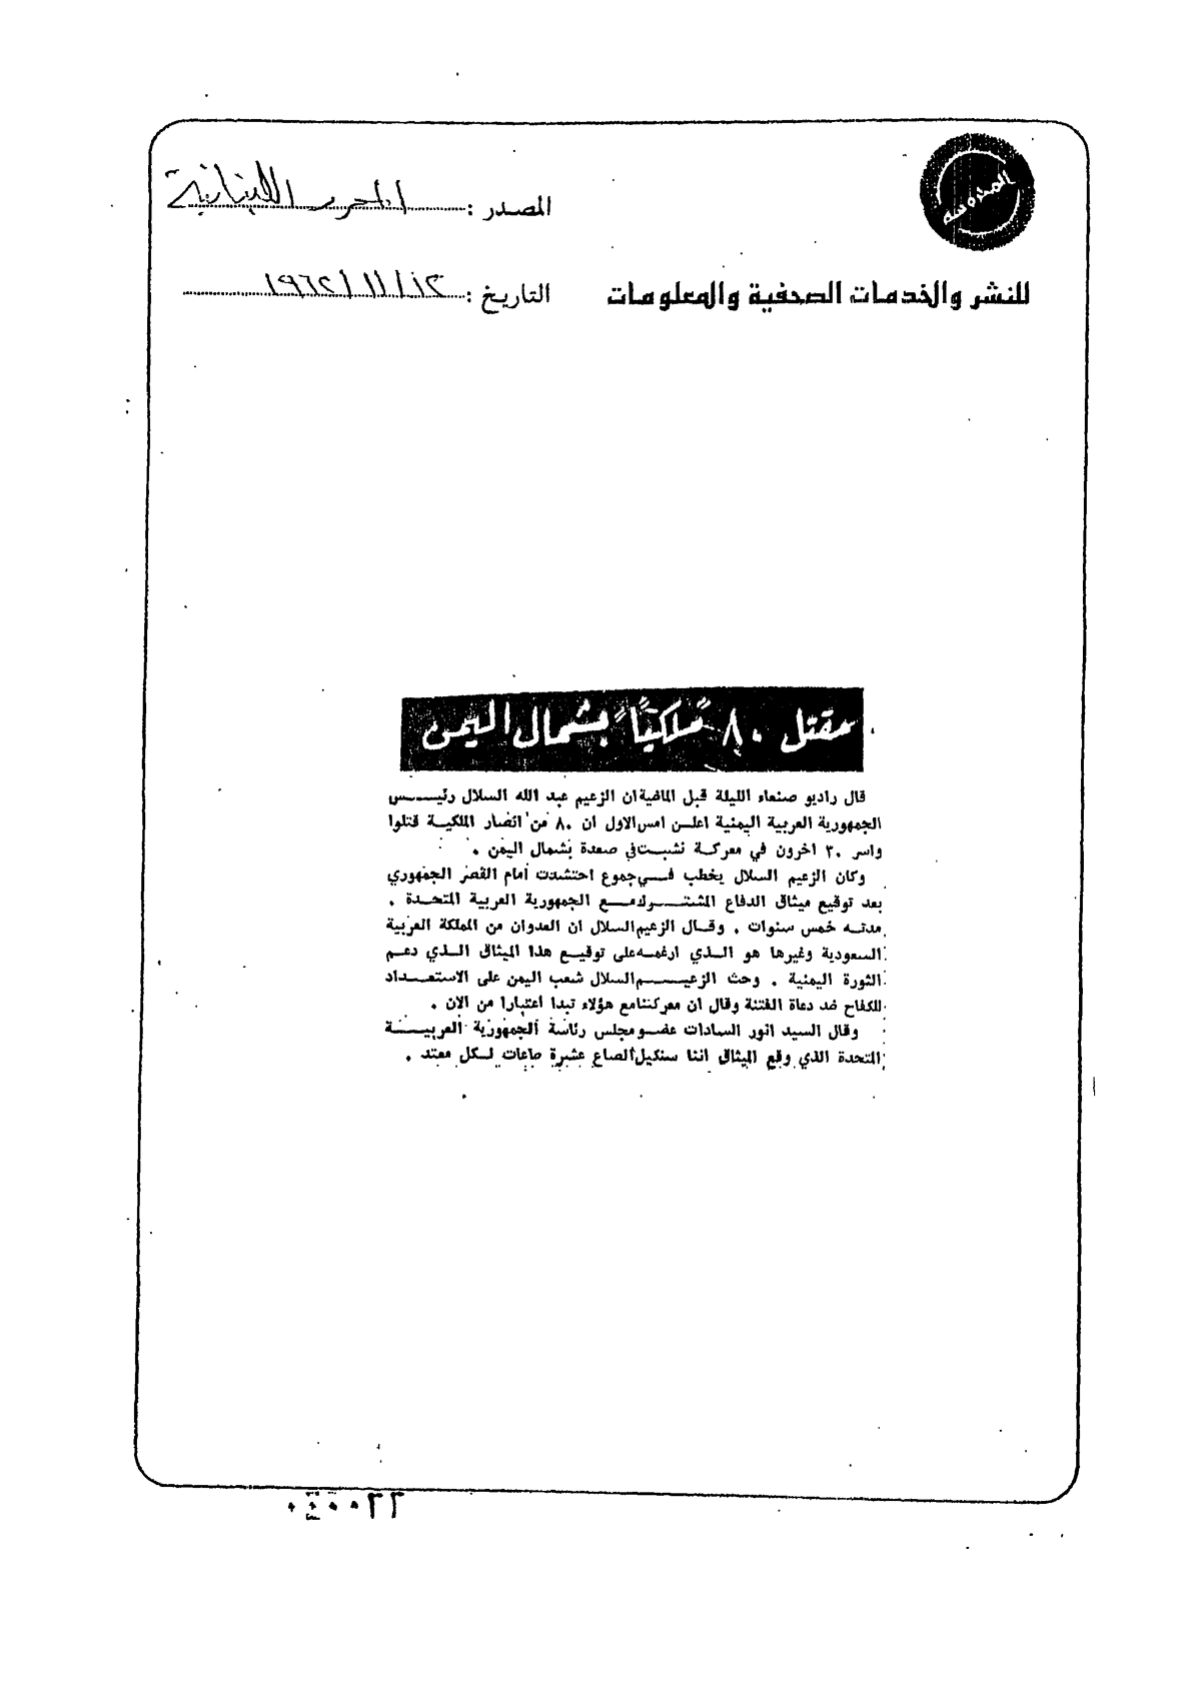 المحروسة
المصدر : المحرر اللبنانية
للنشر والخدمات الصحفية والمعلومات
التاريخ : ١٩٦٢/١١/١٣
مقتل ٨٠ "ملكيًا" بشمال اليمن
قال راديو صنعاء الليلة قبل الماضية ان الزعيم عبد الله السلال رئيس
الجمهورية العربية اليمنية اعلن امس الاول ان ٨٠ من انصار الملكية قتلوا
واسر ٣٠ اخرون في معركة نشبت في صعدة بشمال اليمن .
وكان الزعيم السلال يخطب في جموع احتشدت أمام القصر الجمهوري
بعد توقيع ميثاق الدفاع المشترك مع الجمهورية العربية المتحدة .
مدته خمس سنوات . وقال الزعيم السلال ان العدوان من المملكة العربية
السعودية وغيرها هو الذي ارغمه على توقيع هذا الميثاق الذي دعم
الثورة اليمنية . وحث الزعيم السلال شعب اليمن على الاستعداد
للكفاح ضد دعاة الفتنة وقال ان معركتنا مع هؤلاء تبدا اعتبارا من الان .
وقال السيد انور السادات عضو مجلس رئاسة الجمهورية العربية
المتحدة الذي وقع الميثاق اننا سنكيل الصاع عشرة صاعات لكل معتد .